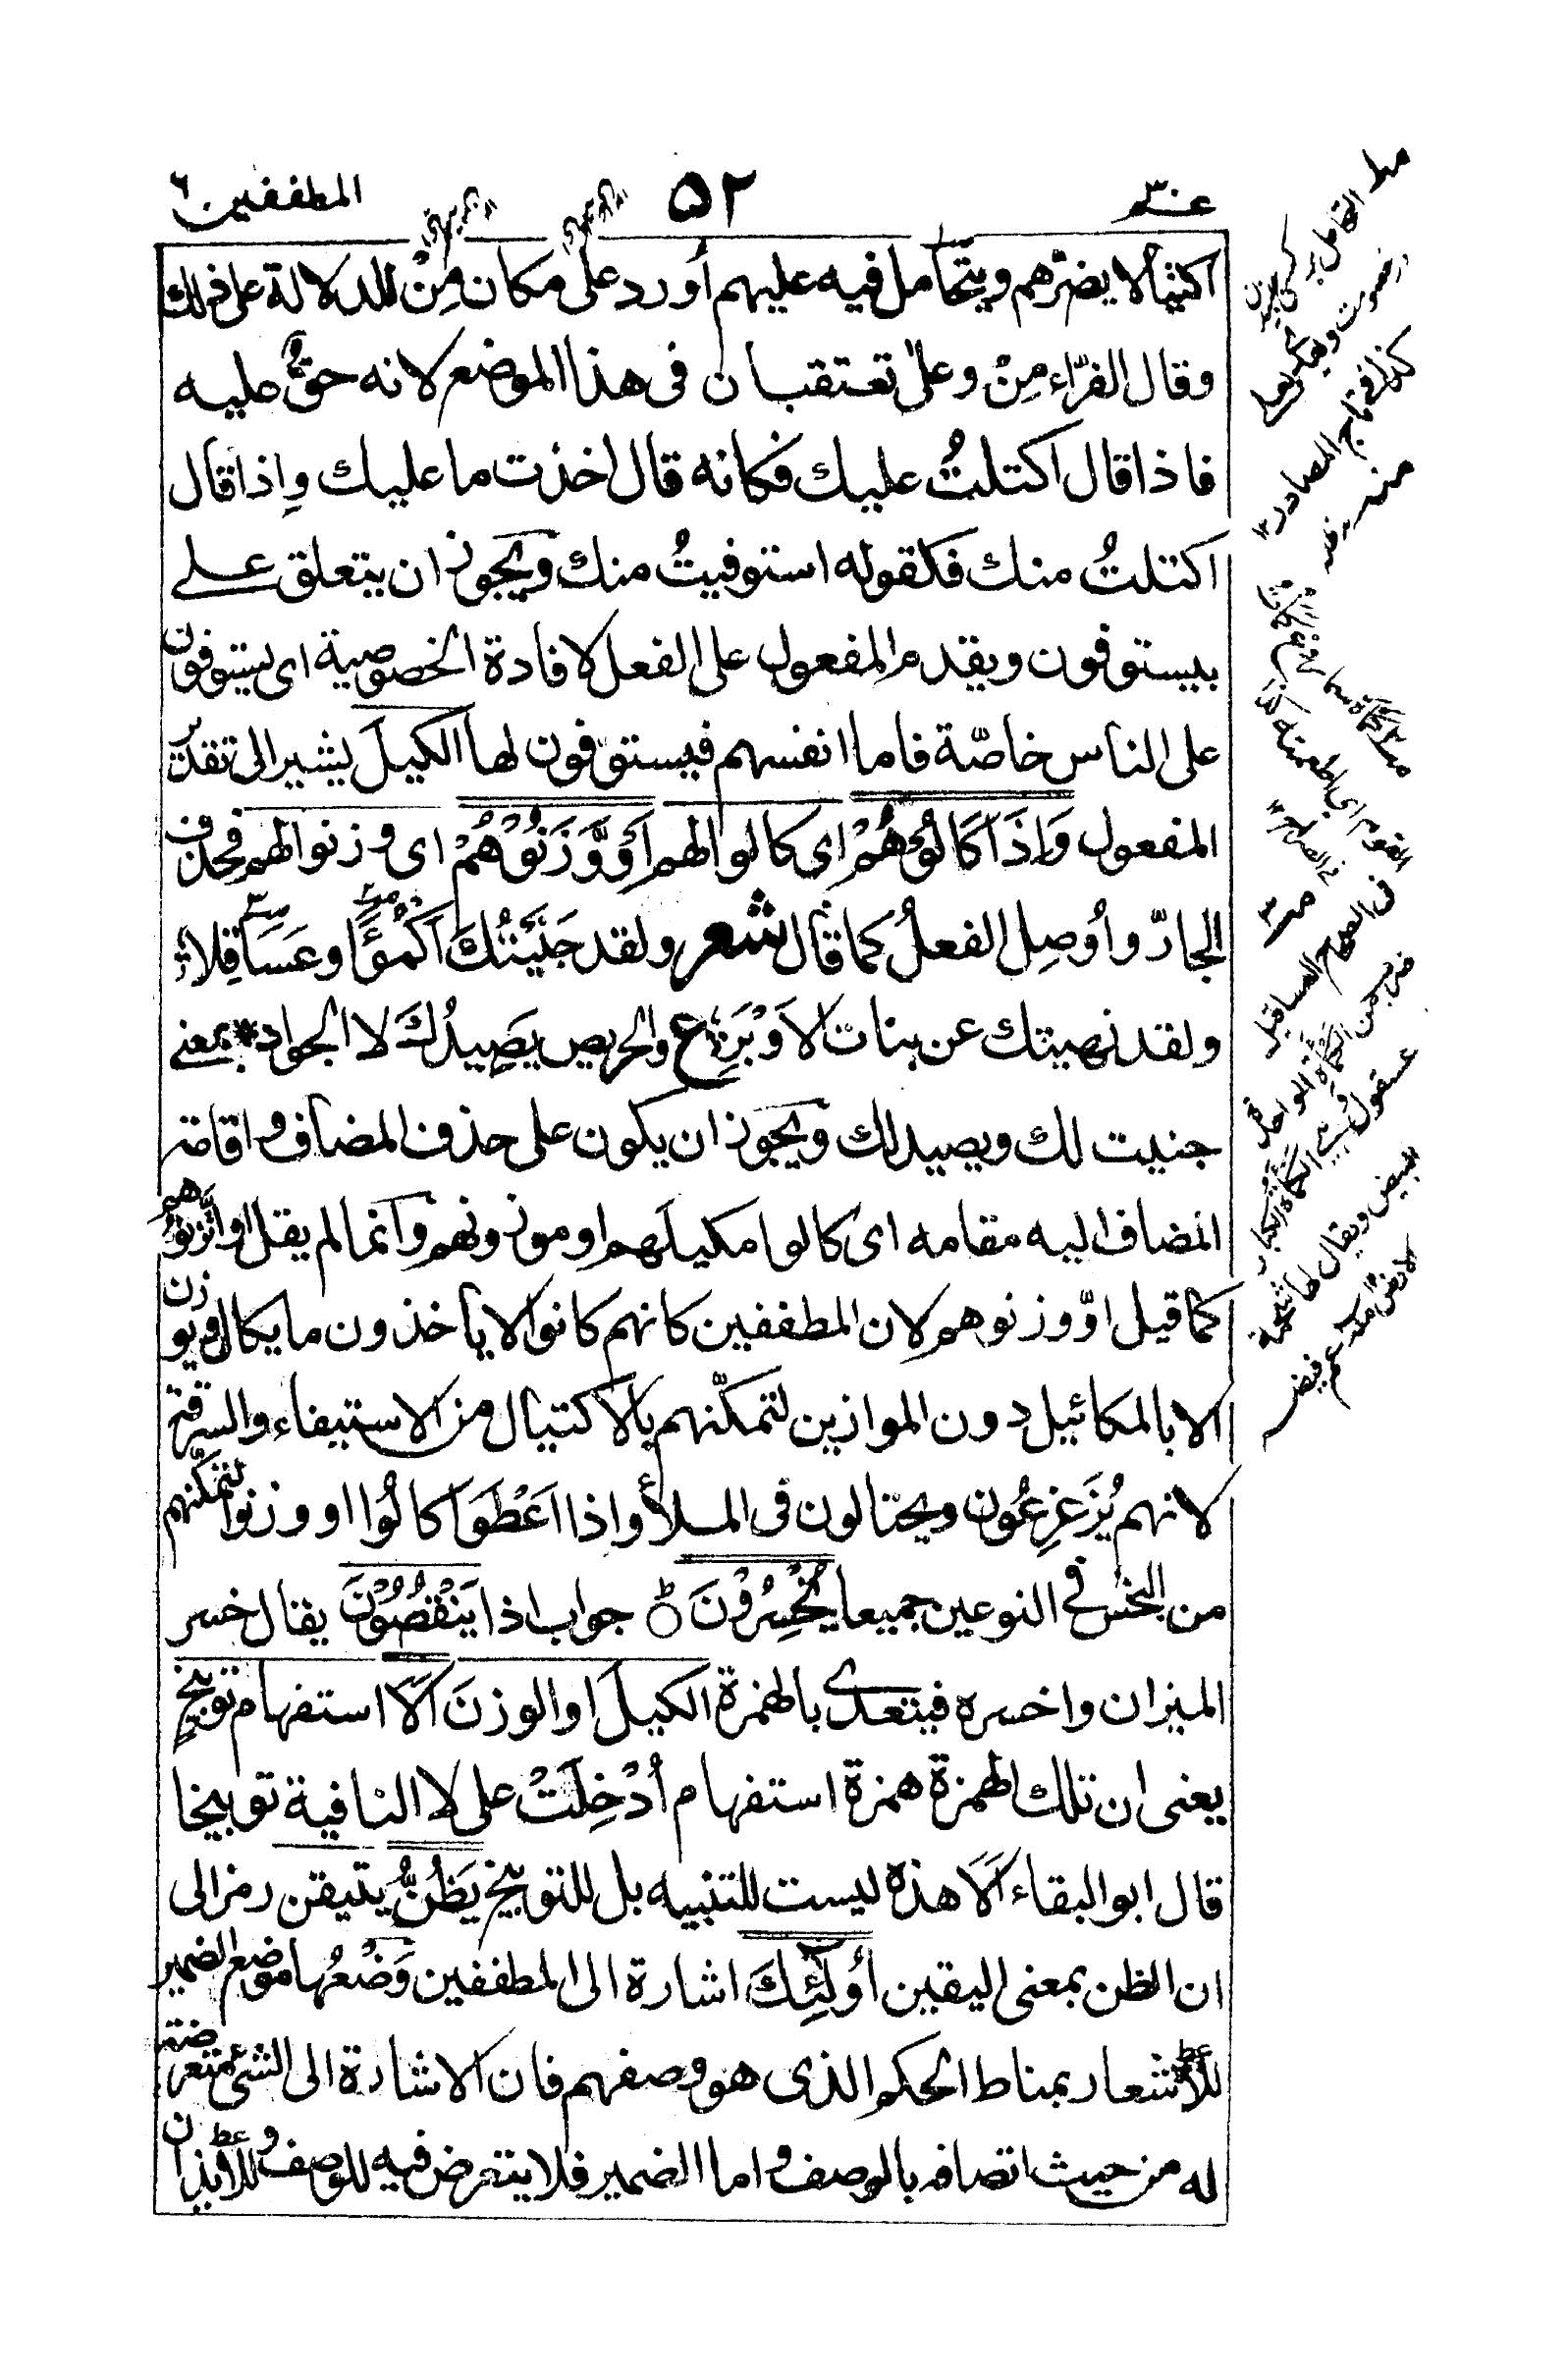 عم ٣٠
٥٢
المطففين
اكتيالا يضرّهم ويتحامل فيه عليهم أورد على مكان مِنْ للدلالة على ذلك
وقال الفرّاء مِنْ وعلى تعتقبان فى هذا الموضع لانه حقٌّ عليه
فاذا قال اكتلتُ عليك فكانه قال اخذت ما عليك وإذا قال
اكتلتُ منك فكقوله استوفيتُ منك ويجوز ان يتعلق على
بيستوفون ويقدم المفعول على الفعل لافادة الخصوصية اى يستوفون
على الناس خاصّة فاما انفسهم فيستوفون لها الكيلَ يشير الى تقدير
المفعول وَاِذَا كَالُوْهُمْ اى كالوا لهم اَوْ وَّزَنُوْهُمْ اى وزنوا لهم فحذف
الجارّ واُوصِل الفعلُ كما قال شعر ولقد جَنَيْتُكَ اَكْمُؤًا وعَسَاقِلاً
ولقد نهيتك عن بنات الاَوْبَرِ ع والحريص يَصِيدُكَ لا الجواد * بمعنى
جنيت لك ويصيد لك ويجوز ان يكون على حذف المضاف واقامة
المضاف اليه مقامه اى كالوا مكيلَهم او موزونهم وانما لم يقل او اتّزنوهم
كما قيل اوّ وزنوهم لان المطففين كانهم كانوا لا يأخذون ما يكال ويوزن
الا بالمكائيل دون الموازين لتمكّنهم بالاكتيال من الاستيفاء والسرقة
لانهم يُزَعْزِعُون ويحتالون فى الملأ واذا اَعْطَوا كالُوا او وزنوا لتمكّنهم
من البخس فى النوعين جميعا يُخْسِرُوْنَ ۝ جواب اذا يَنْقُصُوْنَ يقال خسر
الميزان واخسره فيتعدى بالهمزة الكيلَ او الوزنَ اَلَا استفهام توبيخ
يعنى ان تلك الهمزة همزة استفهام أُدْخِلَتْ على لا النافية توبيخا
قال ابو البقاء اَلَا هذه ليست للتنبيه بل للتوبيخ يَظُنُّ يتيقن رمز الى
ان الظن بمعنى اليقين أُولٰٓئِكَ اشارة الى المطففين وَضْعُها موضع الضمير
للأشعار بمناط الحكم الذى هو وصفهم فان الاشارة الى الشئ متعرضة
له من حيث اتصافه بالوصف واما الضمير فلا يتعرض فيه للوصف وللأيذان